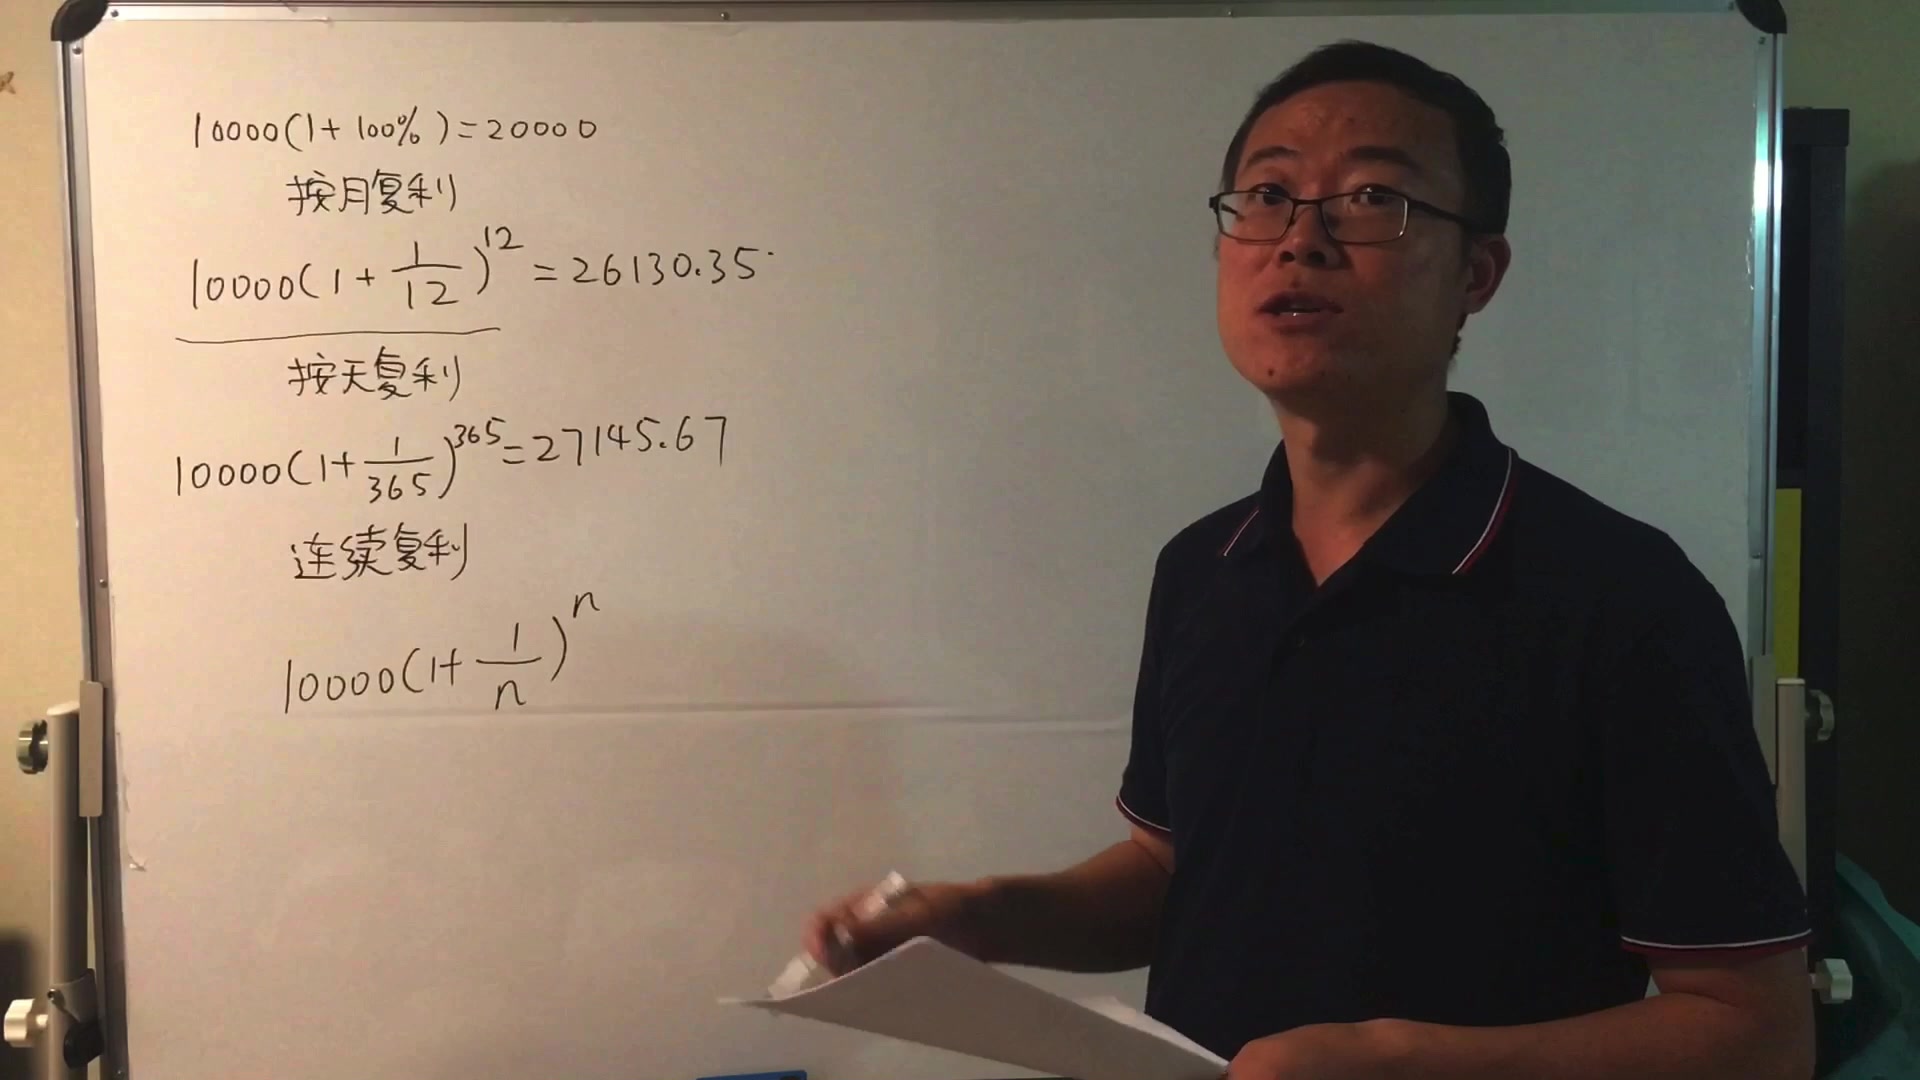 10000(1+100%)=20000
按月复利
10000(1+1/12)^12=26130.35
按天复利
10000(1+1/365)^365=27145.67
连续复利
10000(1+1/n)^n